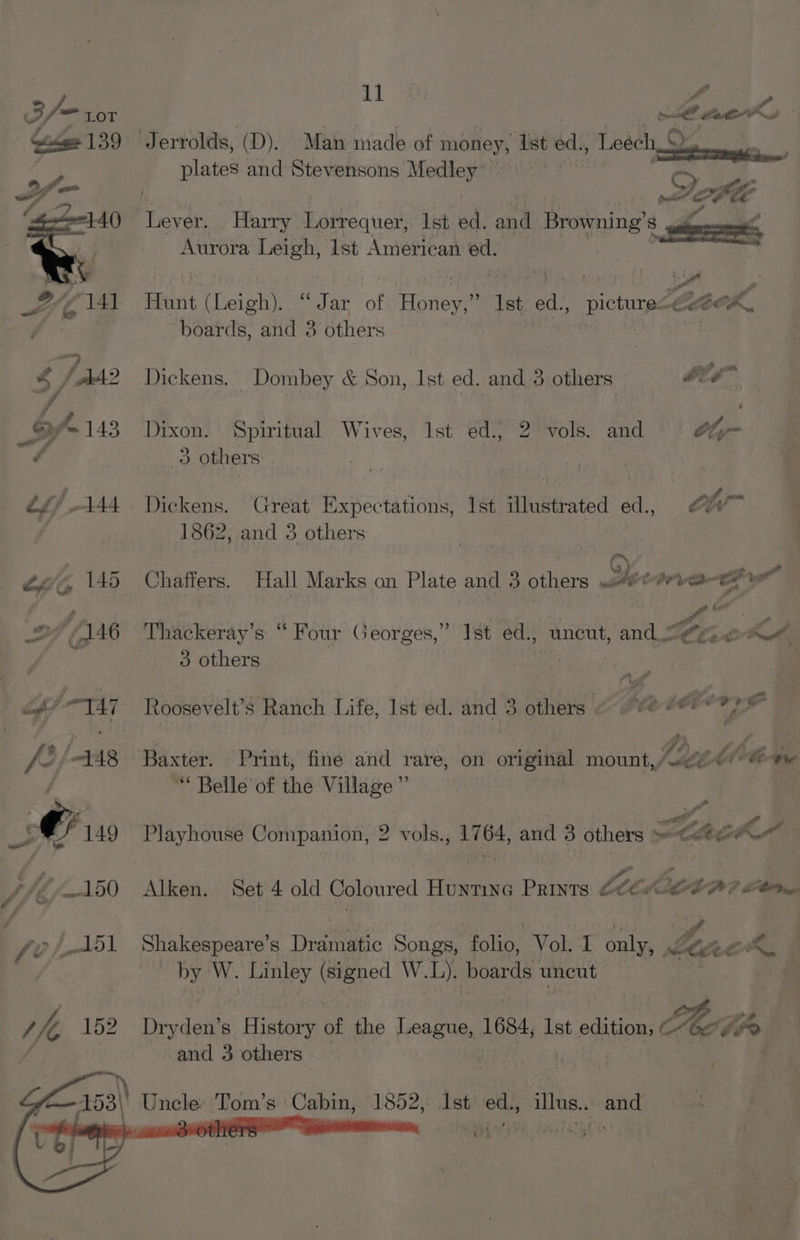 11
3/- LOT
139 Jerrolds, (D). Man made of money, 1st ed., Leech
plates and Stevensons Medley
140 Lever. Harry Lorrequer, 1st ed. and Browning's
Aurora Leigh, 1st American ed.
141 Hunt (Leigh). “Jar of Honey,” 1st ed., picture
boards, and 3 others
142 Dickens. Dombey & Son, 1st ed. and 3 others
143 Dixon. Spiritual Wives, 1st ed., 2 vols. and
3 others
144 Dickens. Great Expectations, 1st illustrated ed.,
1862, and 3 others
145 Chaffers. Hall Marks on Plate and 3 others
146 Thackeray's “Four Georges,” 1st ed., uncut, and
3 others
147 Roosevelt's Ranch Life, 1st ed. and 3 others
148 Baxter. Print, fine and rare, on original mount,
“Belle of the Village”
149 Playhouse Companion, 2 vols., 1764, and 3 others
150 Alken. Set 4 old Coloured HUNTING PRINTS
151 Shakespeare's Dramatic Songs, folio, Vol. I only,
by W. Linley (signed W.L). boards uncut
152 Dryden's History of the League, 1684, 1st edition,
and 3 others
153 Uncle Tom's Cabin, 1852, 1st ed., illus.. and
3 others